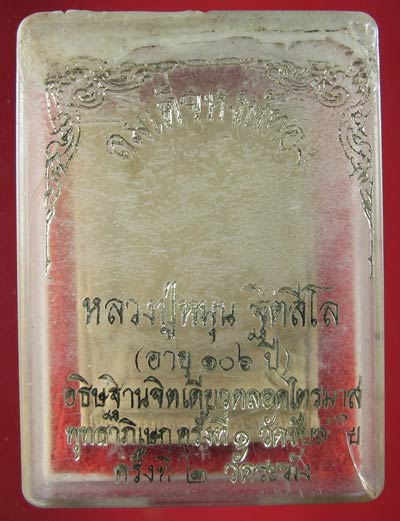 สมเด็จ
หลวงปู่หมุน ฐิตสีโล
(อายุ ๑๐๖ ปี)
อธิษฐานจิตเดี่ยวตลอดไตรมาส
พุทธาภิเษก ครั้งที่ ๑ วัด
ครั้งที่ ๒ วัดระฆัง